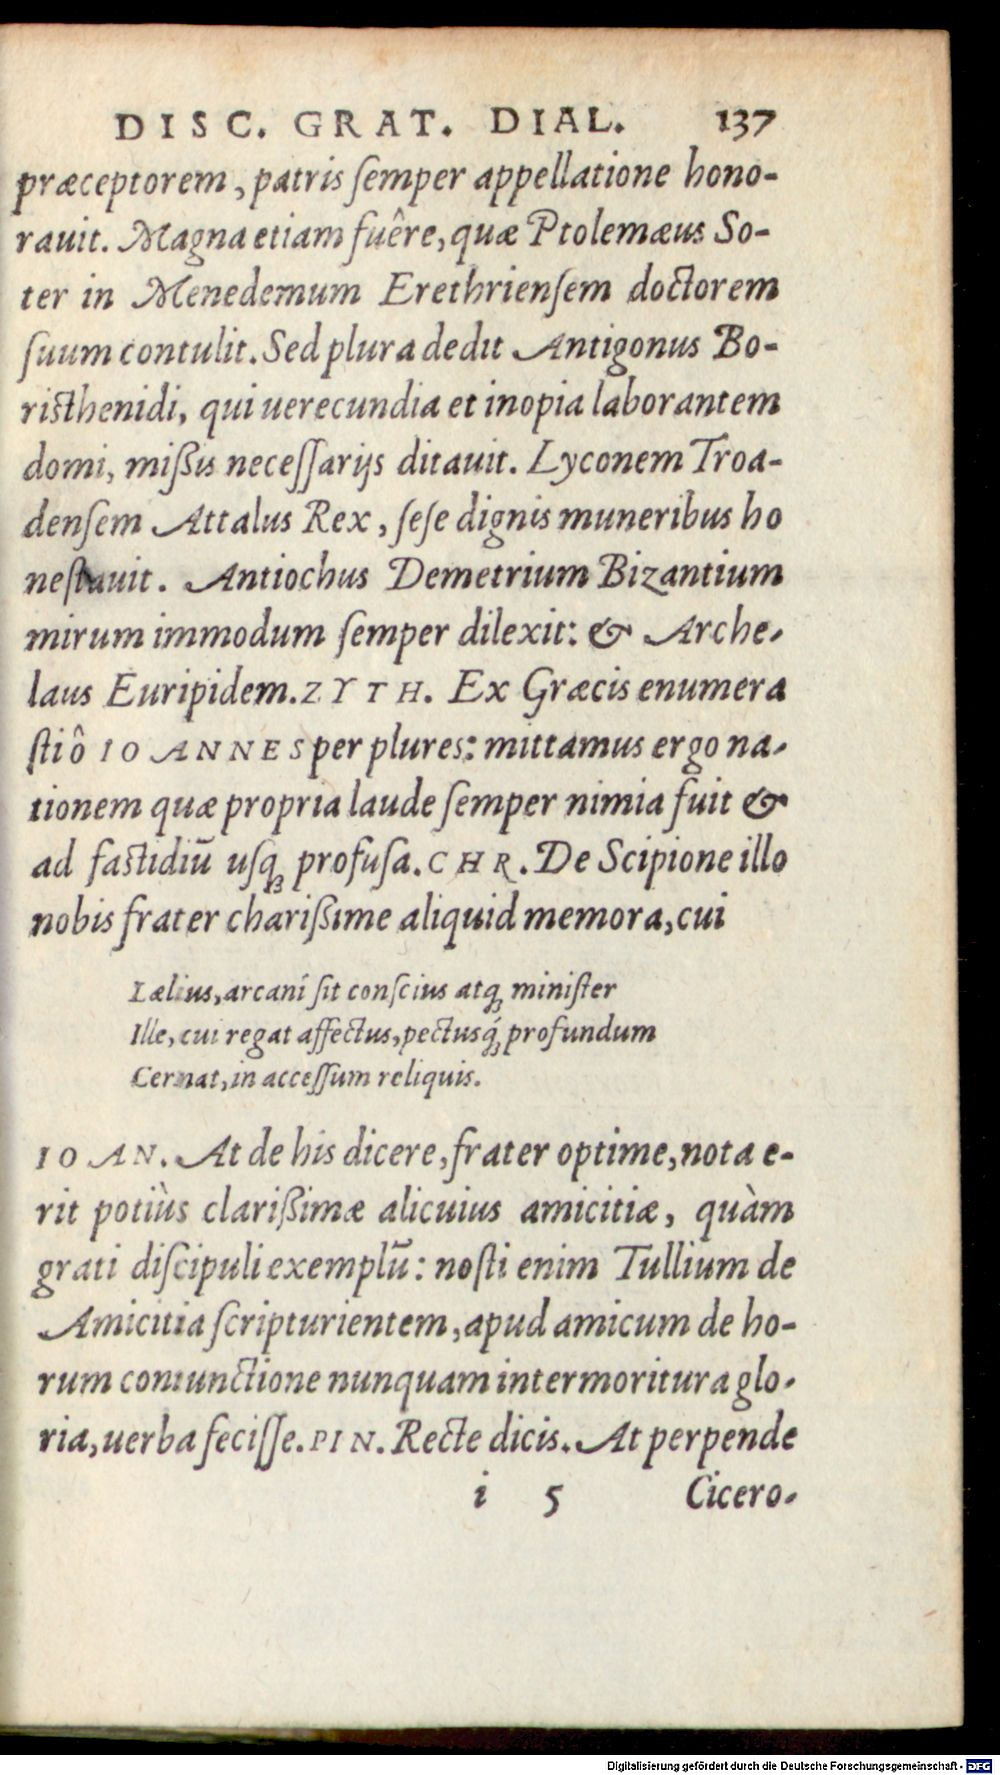 DISC. GRAT. DIAL. 137
præceptorem, patris ſemper appellatione hono-
rauit. Magna etiam fuêre, quæ Ptolemæus So-
ter in Menedemum Erethrienſem doctorem
ſuum contulit. Sed plura dedit Antigonus Bo-
riſthenidi, qui uerecundia et inopia laborantem
domi, mißis neceſſarijs ditauit. Lyconem Troa-
denſem Attalus Rex, ſeſe dignis muneribus ho
neſtauit. Antiochus Demetrium Bizantium
mirum immodum ſemper dilexit: & Arche-
laus Euripidem. ZYTH. Ex Græcis enumera
ſti ô IOANNES per plures: mittamus ergo na-
tionem quæ propria laude ſemper nimia fuit &
ad faſtidiũ uſq; profuſa. CHR. De Scipione illo
nobis frater charißime aliquid memora, cui
Lælius, arcani ſit conſcius atq; miniſter
Ille, cui regat affectus, pectusq́; profundum
Cernat, in acceſſum reliquis.
IOAN. At de his dicere, frater optime, nota e-
rit potiùs clarißimæ alicuius amicitiæ, quàm
grati diſcipuli exemplũ: noſti enim Tullium de
Amicitia ſcripturientem, apud amicum de ho-
rum coniunctione nunquam intermoritura glo-
ria, uerba feciſſe. PIN. Recte dicis. At perpende
i 5 Cicero-
Digitalisierung gefördert durch die Deutsche Forschungsgemeinschaft - DFG